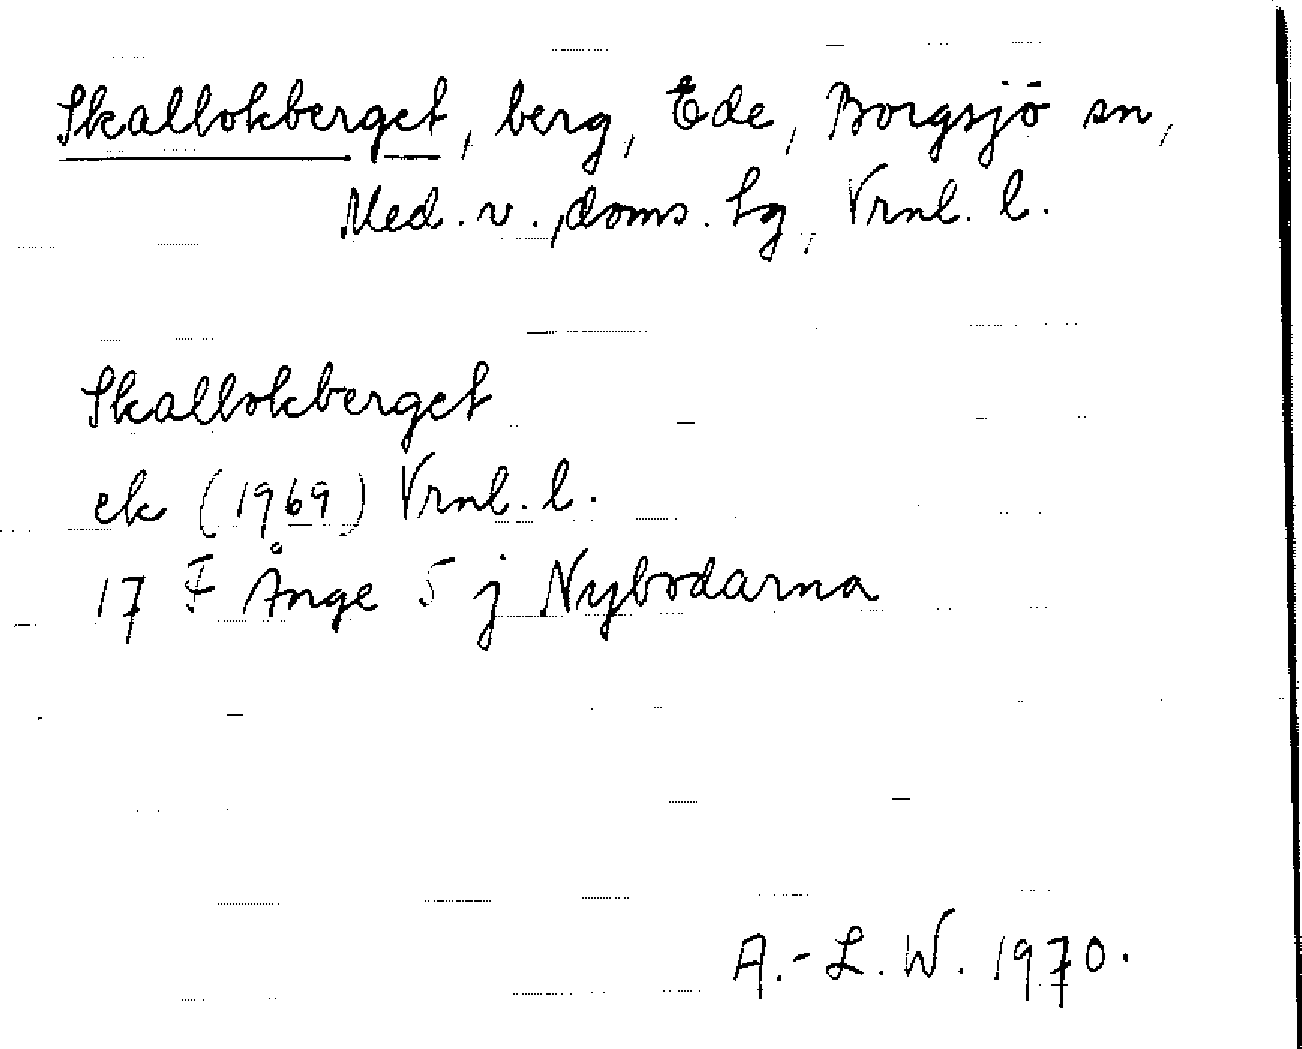 Skallokberget, berg, Ede, Borgsjö sn,
Med. v., doms. hg, Vrnl. l.
Skallokberget
ek (1969) Vrnl. l.
17 F Ånge 5 j Nybodarna
A.-L. W. 1970.